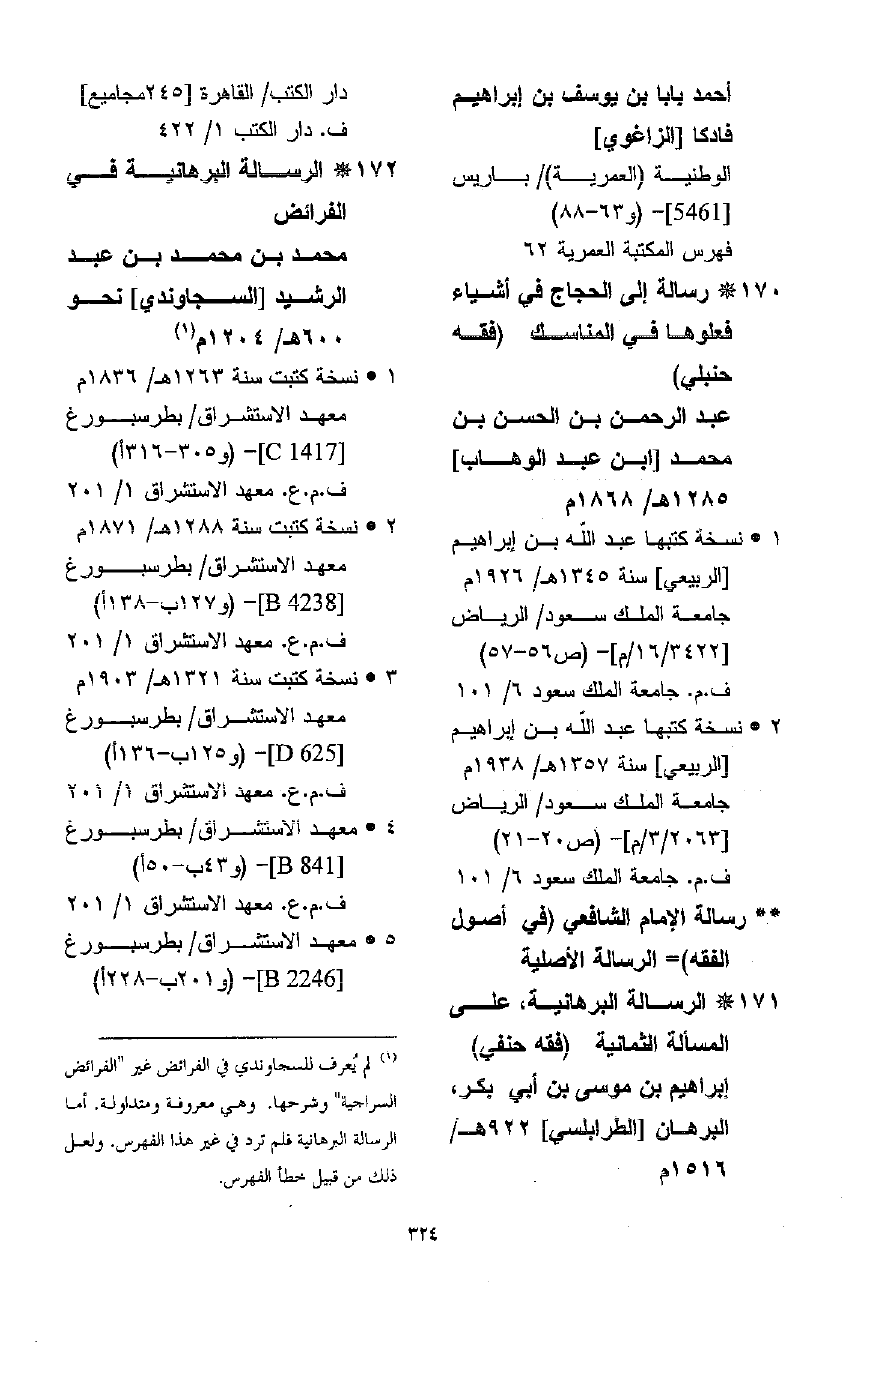 أحمد بابا بن يوسف بن إبراهيم
فادكا [الزاغوي]
الوطنية (العمرية)/ باريس
[5461]- (و٦٣-٨٨)
فهرس المكتبة العمرية ٦٢
١٧٠* رسالة إلى الحجاج في أشياء
فعلوها في المناسك (فقه
حنبلي)
عبد الرحمن بن الحسن بن
محمد [ابن عبد الوهاب]
١٢٨٥هـ/ ١٨٦٨م
١ • نسخة كتبها عبد الله بن إبراهيم
[الربيعي] سنة ١٣٤٥هـ/ ١٩٢٦م
جامعة الملك سعود/ الرياض
[١٦/٣٤٢٢/م]- (ص٥٦-٥٧)
ف.م. جامعة الملك سعود ٦/ ١٠١
٢ • نسخة كتبها عبد الله بن إبراهيم
[الربيعي] سنة ١٣٥٧هـ/ ١٩٣٨م
جامعة الملك سعود/ الرياض
[٣/٢٠٦٣/م]- (ص٢٠-٢١)
ف.م. جامعة الملك سعود ٦/ ١٠١
** رسالة الإمام الشافعي (في أصول
الفقه)= الرسالة الأصلية
١٧١* الرسالة البرهانية، على
المسألة الثمانية (فقه حنفي)
إبراهيم بن موسى بن أبي بكر،
البرهان [الطرابلسي] ٩٢٢هـ/
١٥١٦م
دار الكتب/ القاهرة [٢٤٥مجاميع]
ف. دار الكتب ١/ ٤٢٢
١٧٢* الرسالة البرهانية في
الفرائض
محمد بن محمد بن عبد
الرشيد [السجاوندي] نحو
٦٠٠هـ/ ١٢٠٤م(١)
١ • نسخة كتبت سنة ١٢٦٣هـ/ ١٨٣٦م
معهد الاستشراق/ بطرسبورغ
[C 1417]- (و٣٠٥-٣١٦أ)
ف.م.ع. معهد الاستشراق ١/ ٢٠١
٢ • نسخة كتبت سنة ١٢٨٨هـ/ ١٨٧١م
معهد الاستشراق/ بطرسبورغ
[B 4238]- (و١٢٧ب-١٣٨أ)
ف.م.ع. معهد الاستشراق ١/ ٢٠١
٣ • نسخة كتبت سنة ١٣٢١هـ/ ١٩٠٣م
معهد الاستشراق/ بطرسبورغ
[D 625]- (و١٢٥ب-١٣٦أ)
ف.م.ع. معهد الاستشراق ١/ ٢٠١
٤ • معهد الاستشراق/ بطرسبورغ
[B 841]- (و٤٣ب-٥٠أ)
ف.م.ع. معهد الاستشراق ١/ ٢٠١
٥ • معهد الاستشراق/ بطرسبورغ
[B 2246]- (و٢٠١ب-٢٢٨أ)
(١) لم يُعرف للسجاوندي في الفرائض غير "الفرائض
السراجية" وشرحها. وهي معروفة ومتداولة. أما
الرسالة البرهانية فلم ترد في غير هذا الفهرس. ولعل
ذلك من قبيل خطأ الفهرس.
٣٢٤